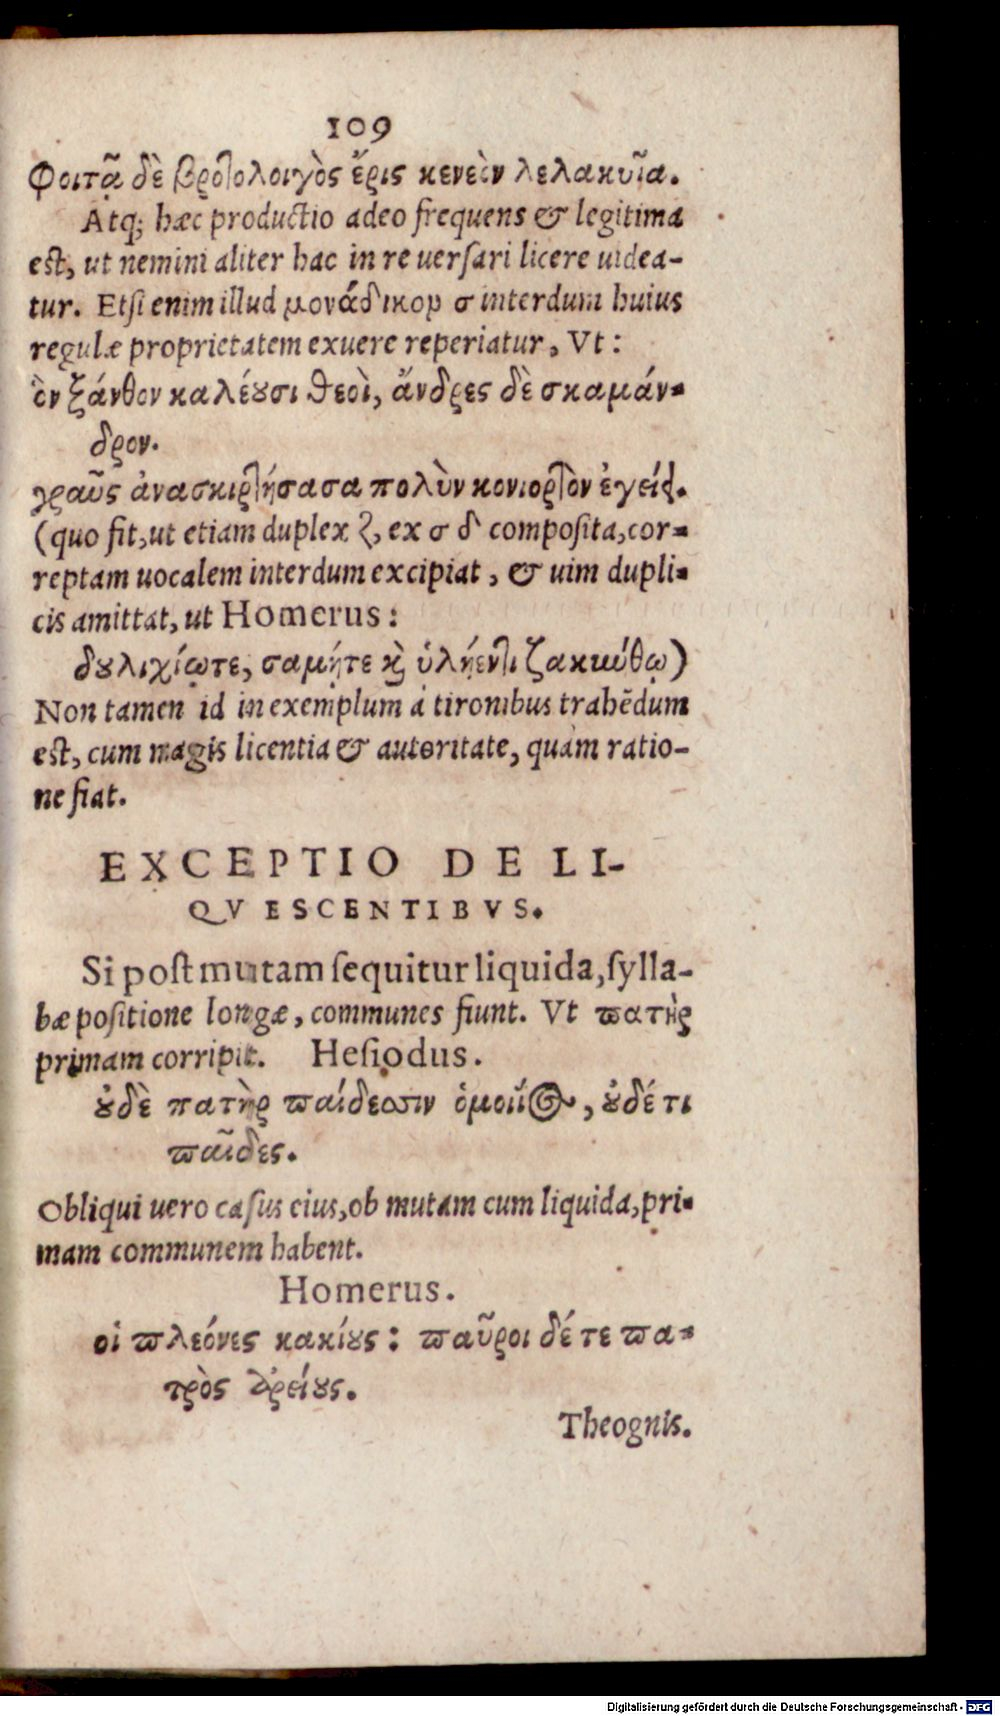 109
Φοιτᾷ δὲ βροτολοιγὸς ἔρις κενεὸν λελακυῖα.
Atq; hæc productio adeo frequens & legitima
est, ut nemini aliter hac in re uersari licere uidea-
tur. Etsi enim illud μονάδικον σ interdum huius
regulæ proprietatem exuere reperiatur, Vt:
ὃν ξάνθον καλέουσι θεοὶ, ἄνδρες δὲ σκαμάν-
δρον.
γραῦς ἀνασκιρτήσασα πολὺν κονιορτὸν ἐγείρει.
(quo fit, ut etiam duplex ζ, ex σ δ composita, cor-
reptam uocalem interdum excipiat, & uim dupli-
cis amittat, ut Homerus:
δουλιχίῳτε, σαμήτε καὶ ὑλήεντι ζακυνθῳ)
Non tamen id in exemplum à tironibus trahẽdum
est, cum magis licentia & autoritate, quàm ratio-
ne fiat.
EXCEPTIO DE LI-
QVESCENTIBVS.
Si post mutam sequitur liquida, sylla-
bæ positione longæ, communes fiunt. Vt πατὴρ
primam corripit. Hesiodus.
οὐδὲ πατὴρ παίδεσσιν ὁμοίϊος, οὐδέ τι
παῖδες.
Obliqui uero casus eius, ob mutam cum liquida, pri-
mam communem habent.
Homerus.
οἱ πλεόνες κακίους: παῦροι δέ τε πα-
τρὸς ἀρείους.
Theognis.
Digitalisierung gefördert durch die Deutsche Forschungsgemeinschaft - DFG